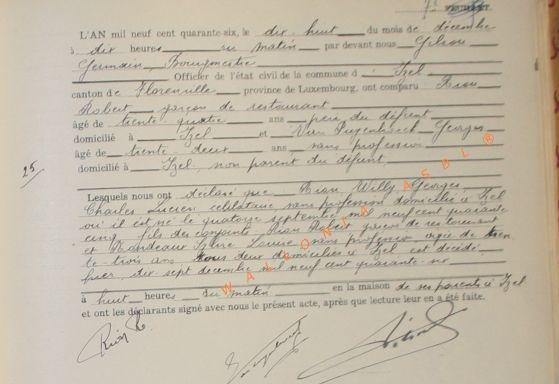 7 FEUILLET.
L'AN mil neuf cent quarante-six, le dix huit du mois de décembre
à dix heures du matin par devant nous Gilson
Germain, Bourgmestre
Officier de l'état civil de la commune d' Izel
canton de Florenville province de Luxembourg, ont comparu Rion
Robert garçon de restaurant
âgé de trente quatre ans père du défunt
domicilié à Izel et Van Georges
âgé de trente-deux ans sans profession
domicilié à Izel, non parent du défunt
25
Lesquels nous ont déclaré que Rion Willy Georges,
Charles Lucien célibataire sans profession domicilié à Izel
où il est né le quatorze septembre mil neuf cent quarante
cinq, fils des conjoints Rion Robert garçon de restaurant
et Louise sans profession agée de tren
te-trois ans tous deux domiciliés à Izel est décédé
hier, dix sept décembre mil neuf cent quarante-six
à huit heures du matin en la maison de ses parents à Izel
et ont les déclarants signé avec nous le présent acte, après que lecture leur en a été faite.
Rion R
WALLONIA ASBL ®